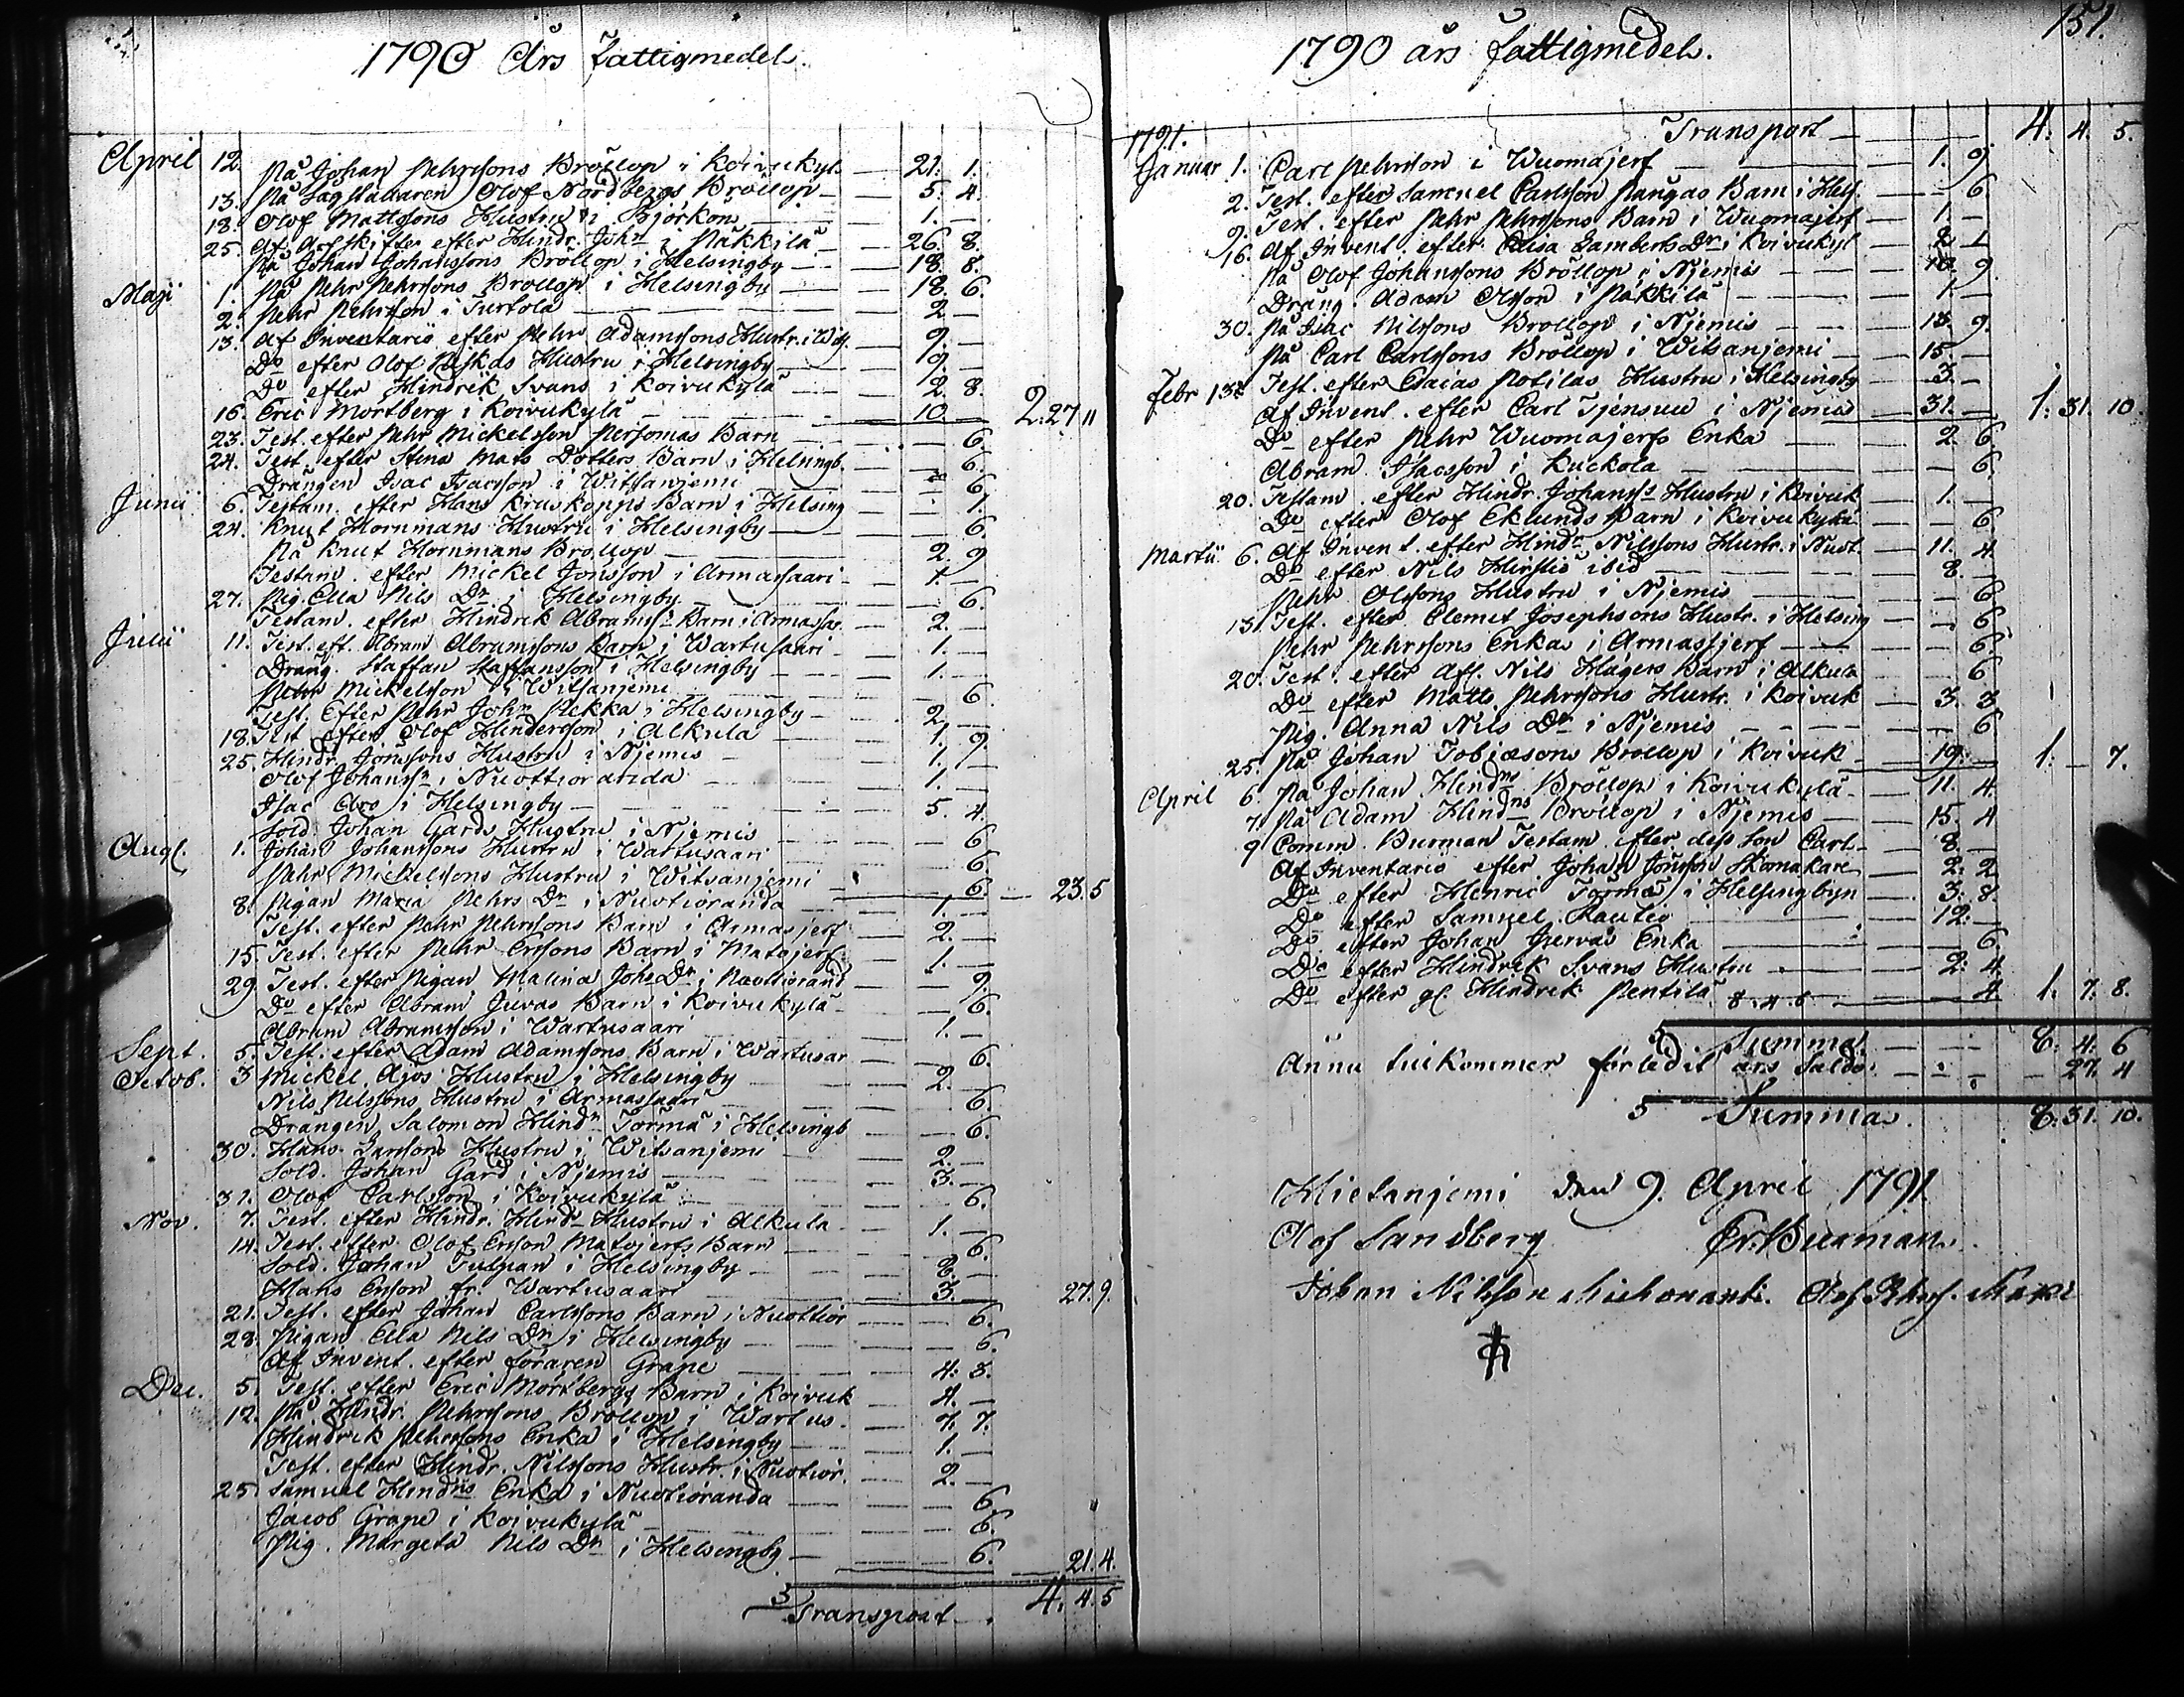 1790 Års Fattigmedel.
April 12. På Johan Pehrssons Bröllop i Koivukyl. — 21. 1.
13. På Olof Nordbergs Bröllop — 5. 4.
18. Olof Mattssons Hustru i Björkon — 1. —
25. Af Arfskifte efter Hindr. Johns i Päkkilä — 26. 8.
På Johan Johanssons Bröllop i Helsingby — 18. 8.
Maji 1. På Pehr Pehrssons Bröllop i Helsingby — 18. 6.
2. Pehr Pehrsson i Turtola — 2. —
13. Af Inventario efter Pehr Adamssons Hustr. i — 9. —
Do efter Olof Niskas Hustru i Helsingby — 9. —
Do efter Hindrek Svans i Koivukylä — 2. 8.
16. Eric Mortberg i Koivukylä — 10. — 2. 27 11
23. Test. efter Pehr Mickelsson Persomas Barn — 6.
24. Test. efter Stina Mats Dotters Barn i Helsingb. — 6.
Drängen Isac Isacsson i Witsanjemi — 6.
Junii 6. Testam. efter Hans Kruskopps Barn i Helsing — 1.
24. Knut Hornmans Hustru i Helsingby — 6.
På Knut Hornmans Bröllop — 2. 9
Testam. efter Mickel Jönsson i Armassaari — 1. —
27. Pig. Ella Nils Dr i Helsingby — 6.
Testam. efter Hindrek Abramss. Barn i Armassar. — 2. —
Julii 11. Test. eft. Abram Abramssons Barn i Wartusaari — 1. —
Dräng. Staffan Staffansson i Helsingby — 1. —
Pehr Mickelsson i Witsanjemi — 6.
Test. Efter Pehr Johns Pekka i Helsingby — 2. —
18. Test. efter Olof Hindersson i Alkula — 1. 9.
25. Hindr. Jönssons Hustru i Njemis — 1. —
Olof Johanss. i Nuottioranda — 1. —
Isac Aro i Helsingby — 5. 4.
Sold. Johan Gards Hustru i Njemis — 6
Aug. 1. Johan Johanssons Hustru i Wartusaari — 6
Pehr Mickelssons Hustru i Witsanjemi — 6. — 23. 5
8. Pigan Maria Pehrs Dr i Nuotioranda — 1. —
Test. efter Pehr Pehrssons Barn i Armasjerf — 2. —
15. Test. efter Pehr Erssons Barn i Matojerf — 1. —
29. Test. efter Pigan Malina Johs Dr i Nuottiorand — 9.
Do efter Abram Juvas Barn i Koivukylä — 6.
Abram Abramsson i Wartusaari — 1. —
Sept. 5. Test. efter Adam Adamssons Barn i Wartusar — 6.
Octob. 3 Mickel Ajos Hustru i Helsingby — 2. —
Nils Nilssons Hustru i Armassaari — 6.
Drängen Salomon Hindn Tormä i Helsingb — 6.
30. Hans Larssons Hustru i Witsanjemi — 2. —
Sold. Johan Gard i Njemis — 3. —
31. Olof Carlsson i Koivukylä — 6.
Nov. 7. Test. efter Hindr. Hinds Hustru i Alkula — 1. —
14. Test. efter Olof Ersson Matojerfs Barn — 6.
Sold. Johan Tulpan i Helsingby — 2. —
Hans Ersson fr. Wartusaari — 3. — 27. 9.
21. Test. efter Johan Carlssons Barn i Nuottior — 6.
28. Pigan Ella Nils Dr i Helsingby — 6.
Af Invent. efter föraren Grape — 4. 3.
Dec. 5. Test. efter Eric Mortbergs Barn i Koivuk — 4. —
12. På Hindr. Pehrssons Bröllop i Wartus — 7. 7.
Hindrek Pehrssons Enka i Helsingby — 1. —
Test. efter Hindr. Nilssons Hustr. i Nuotior. — 2. —
25. Samuel Hindns Enka i Nuotioranda — 6.
Jacob Grape i Koivukylä — 6.
Pig. Margeta Nils Dr i Helsingby — 6. — 21. 4.
Transport. 4. 4. 5
151.
1790 års fattigmedel.
1791. Transport — 4. 4. 5.
Januar 1. Carl Pehrsson i Wuomajerf — 1. 9.
2. Test. efter Samuel Carlsson Pangas Barn i Hels. — 6.
9. Test. efter Pehr Pehrssons Barn i Wuomajerf — 1. —
16. Af Invent. efter Elisa Lamberts Dr i Koivukyl — 2. 1
På Olof Johanssons Bröllop i Njemis — 9.
Dräng. Adam Olsson i Päkkilä — 1. —
30. På Isac Nilssons Bröllop i Njemis — 13. 9.
På Carl Carlssons Bröllop i Witsanjemi — 15. —
Febr 13. Test. efter Esaias Potilas Hustru i Helsingby — 3. —
Af Invent. efter Carl Tjensuu i Njemis — 31. — 1. 31. 10.
Do efter Pehr Wuomajerfs Enka — 2. 6.
Abram Isacsson i Kuckola — 6.
20. Testam. efter Hindr. Johanss. Hustru i Koivuk — 1. —
Do efter Olof Eklunds Barn i Koivukylä — 6.
Martii 6. Af Invent. efter Hindr Nilssons Hustr. i Nuot. — 11. 4
Do efter Nils Hirsliö ibid — 8. —
Pehr Olssons Hustru i Njemis — 6
13. Test. efter Clemet Josephsons Hustr. i Helsing — 6
Pehr Pehrssons Enka i Armasjerf — 6.
20. Test. efter Afl. Nils Hägers Barn i Alkula — 6
Do efter Matts Pehrssons Hustr. i Koivuk — 3. 3
Pig. Anna Nils Dr i Njemis — 6
25. På Johan Tobiæsons Bröllop i Koivuk — 19. — 1. — 7.
April 6. På Johan Hindns Bröllop i Koivukylä — 11. 4.
7. På Adam Hindns Bröllop i Njemis — 15. 4
9 Comm. Burman Testam. efter dess Son Carl — 8. —
Af Inventario efter Johan Jönsson Skomakare — 2. 2
Do efter Henric Tormä i Helsingbyn — 3. 8.
Do efter Samuel Rautio — 12. —
Do efter Johan Jervas Enka — 6.
Do efter Hindrek Svans Hustru — 2. 4.
Do efter gl. Hindrek Pentilä — 4. 1. 7. 8.
8. 4. 6
Summa — 8. 4. 6
Ännu tillkommer förledit års Saldo — 27. 4
Summa. 8. 31. 10.
Hietanjemi den 9. April 1791
Olof Sandberg Er. Burman
Johan Nilsson